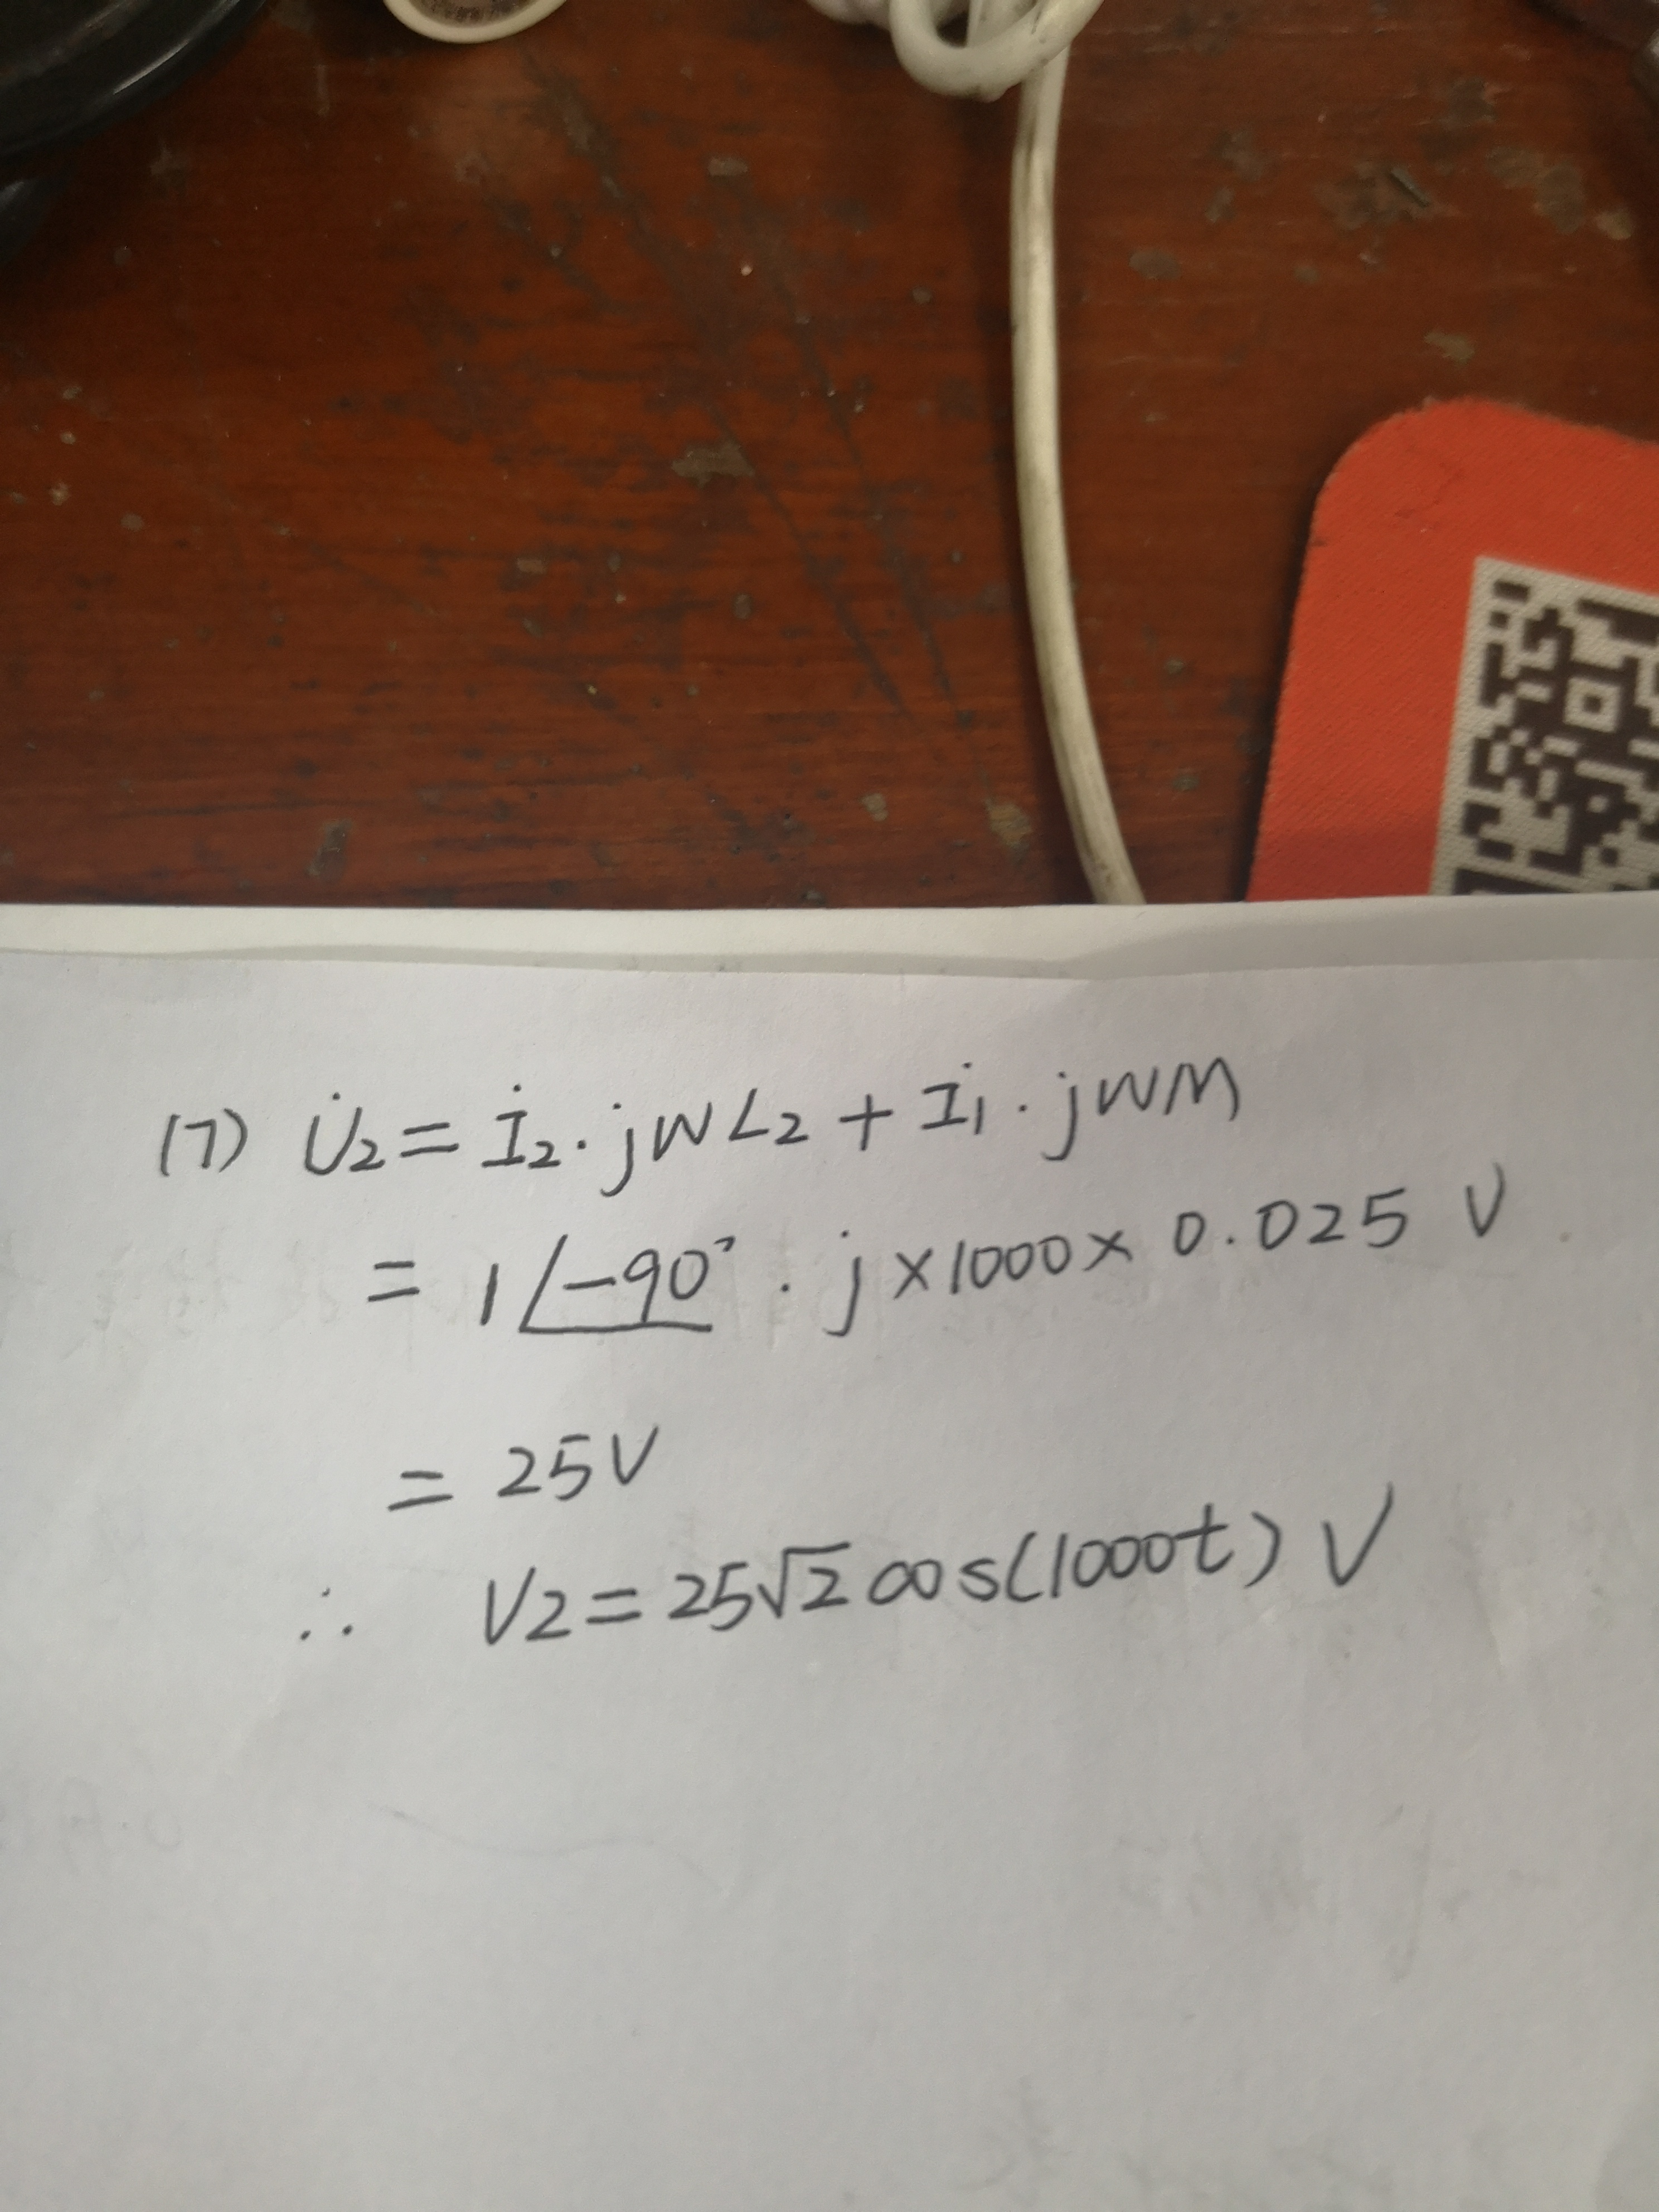 (7) U̇2 = İ2 · jWL2 + İ1 · jWM
= 1∠-90° · j×1000×0.025 V
= 25V
∴ V2 = 25√2 cos(1000t) V